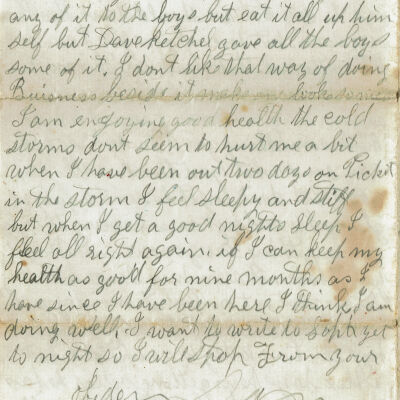 any of it to the boys but eat it all up him
self but Dave Ketcher gave all the boys
some of it. I dont like that way of doing
Buisness beside it makes one look
I am engoying good health the cold
storms dont seem to hurt me a bit
when I have been out two days on Picket
in the storm I feel sleepy and stiff
but when I get a good nights sleep I
feel all right again. if I can keep my
health as good for nine months as I
have since I have been here I think I am
doing well. I want to write to Soph yet
to night so I will stop From your